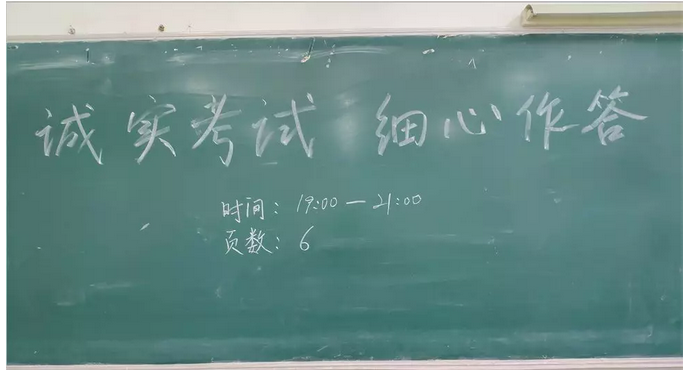 诚实考试 细心作答
时间：19:00—21:00
页数：6